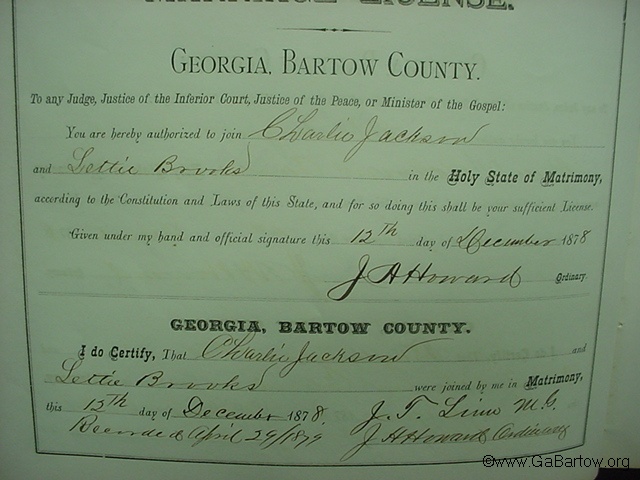 MARRIAGE LICENSE.
GEORGIA, BARTOW COUNTY.
To any Judge, Justice of the Inferior Court, Justice of the Peace, or Minister of the Gospel:
You are hereby authorized to join Charlie Jackson
and Lettie Brooks in the Holy State of Matrimony,
according to the Constitution and Laws of this State, and for so doing this shall be your sufficient License.
Given under my hand and official signature this 12th day of December 1878
J A Howard Ordinary
GEORGIA, BARTOW COUNTY.
I do Certify, That Charlie Jackson and
Lettie Brooks were joined by me in Matrimony,
this 15th day of December 1878. J. T. Linn M.G.
Recorded April 29/1879 J A Howard Ordinary
©www.GaBartow.org